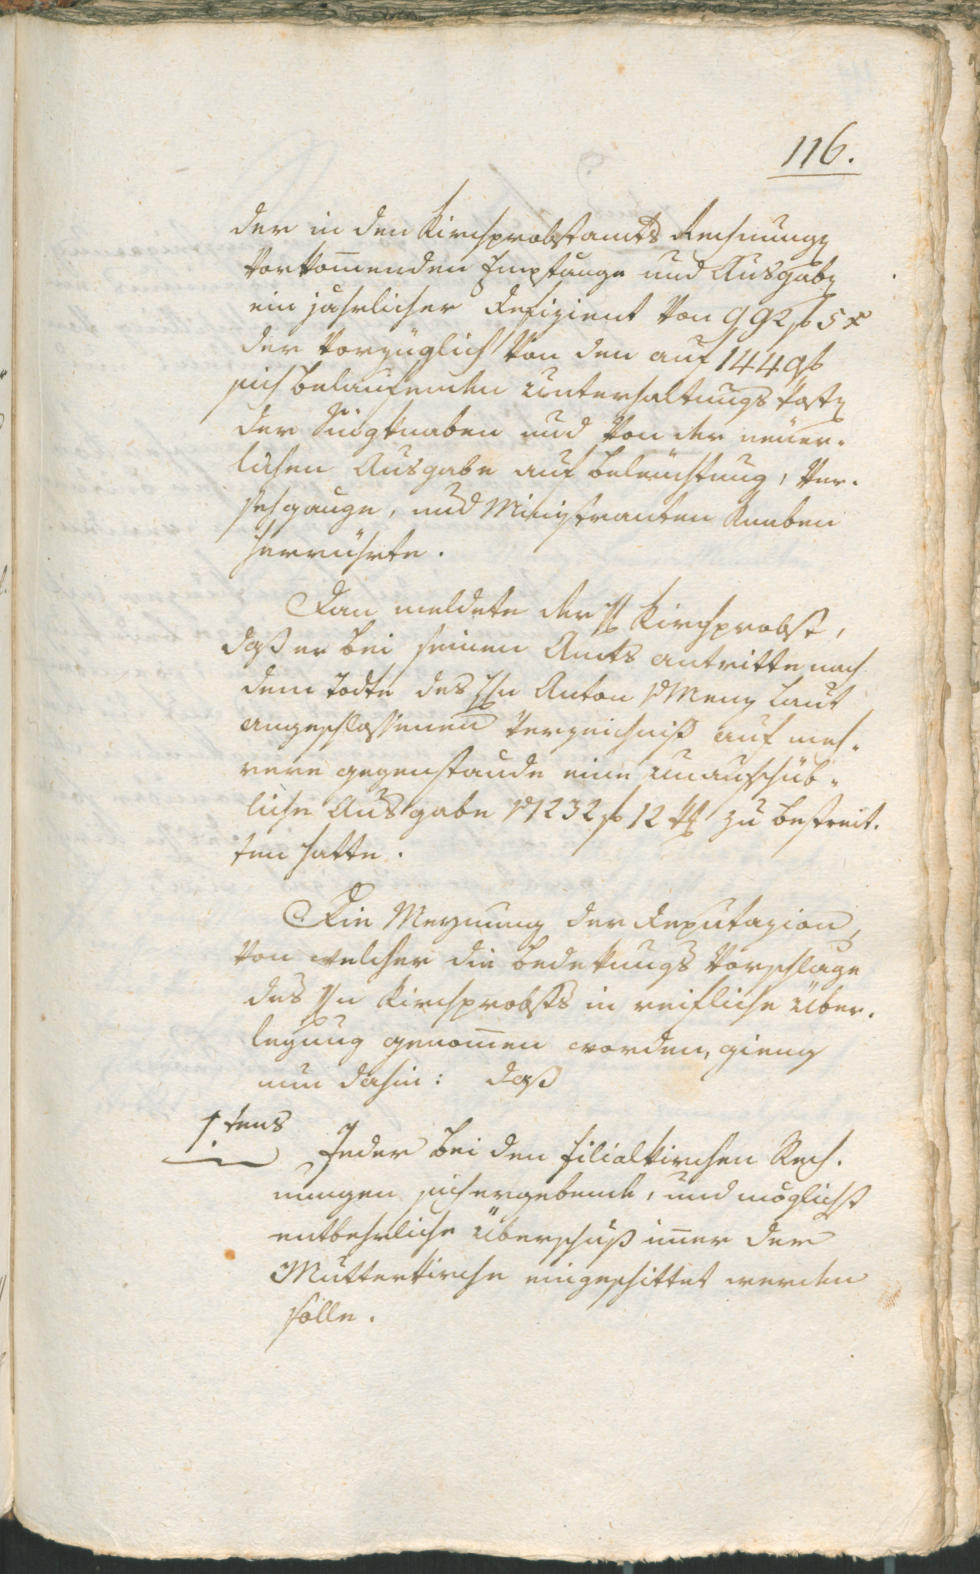 116.
der in den Kirchprobstamts Rechnungen
vorkom̅enden Empfange und Ausgaben
ein jährlicher Defizient von 992 f 5 x
der vorzüglich von den auf 1449 f
sich belaufenden Unterhaltungs kösten
der Singknaben und von der neüer-
lichen Ausgabe auf beleüchtung, ver-
sehgänge, und Ministranten Knaben
herrührte.
Dan meldete der H Kirchprobst,
daß er bei seinen Amts antritte nach
dem Todte des Hn Anton v Menz laut
angeschlossenen Verzeichniß auf meh-
rere gegenstände eine unaufschüb-
liche Ausgabe v 1232 f 12 x zu bestreit-
ten hatte.
Die Meynung der Deputazion,
von welcher die bedekungs Vorschläge
des Hn Kirchprobsts in reifliche Über-
legung genom̅en worden, gieng
nun dahin: daß
1tens Jeder bei den filialkirchen Rech-
nungen sich ergebende, und möglichst
entbehrliche Überschuß im̅er der
Mutterkirche eingeschittet werden
solle.